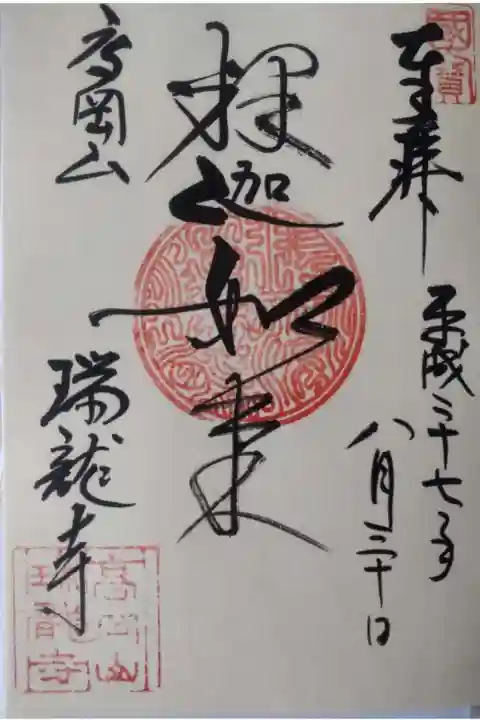 國寶
奉拜
平成二十七年
八月三十日
釋迦如来
高岡山
瑞龍寺
高岡山
瑞龍寺